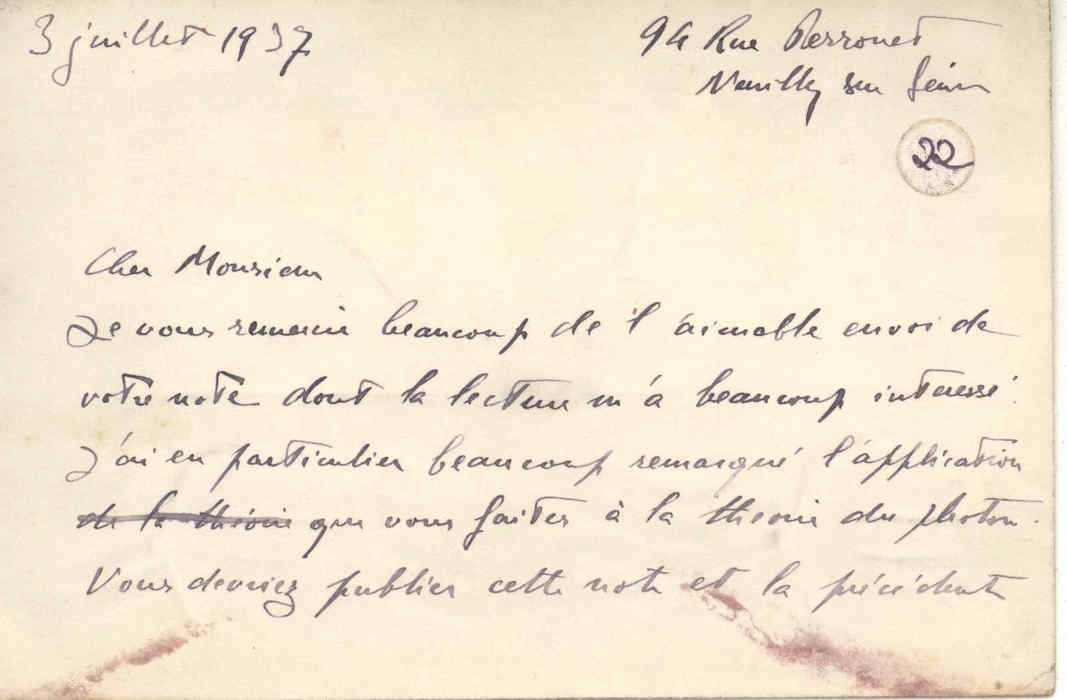 3 juillet 1937
94 Rue Perronet
Neuilly sur Seine
22
Cher Monsieur
Je vous remercie beaucoup de l'aimable envoi de
votre note dont la lecture m'a beaucoup intéressé.
J'ai en particulier beaucoup remarqué l'application
de la théorie que vous faites à la théorie du photon.
Vous devriez publier cette note et la précédente